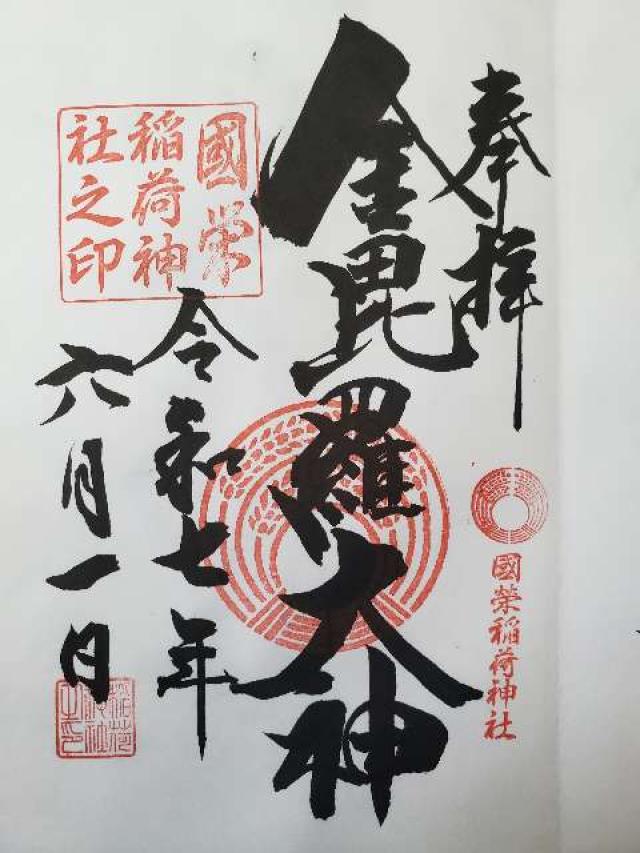 奉拝
國榮稲荷神社
金毘羅大神
國栄
稲荷神
社之印
令和七年
六月一日